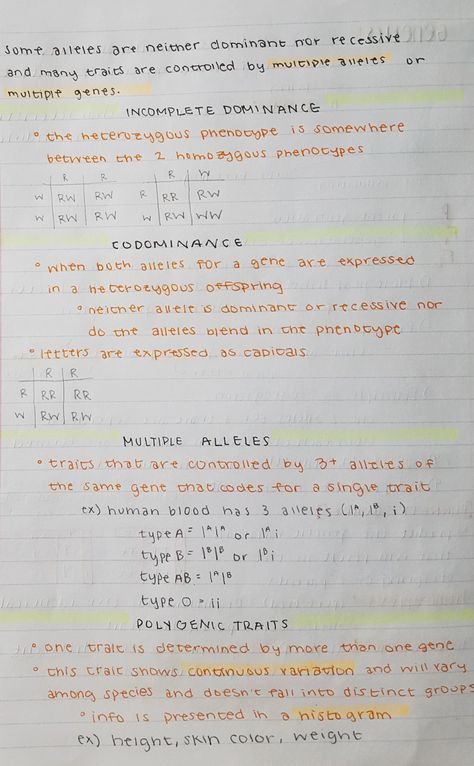 Some alleles are neither dominant nor recessive
and many traits are controlled by multiple alleles or
multiple genes.
INCOMPLETE DOMINANCE
° the heterozygous phenotype is somewhere
between the 2 homozygous phenotypes
R R R W
W RW RW R RR RW
W RW RW W RW WW
CODOMINANCE
° when both alleles for a gene are expressed
in a heterozygous offspring
° neither allele is dominant or recessive nor
do the alleles blend in the phenotype
° letters are expressed as capitals
R R
R RR RR
W RW RW
MULTIPLE ALLELES
° traits that are controlled by 3+ alleles of
the same gene that codes for a single trait
ex) human blood has 3 alleles (Iᴬ, Iᴮ, i)
type A = IᴬIᴬ or Iᴬi
type B = IᴮIᴮ or Iᴮi
type AB = IᴬIᴮ
type O = ii
POLYGENIC TRAITS
° one trait is determined by more than one gene
° this trait shows continuous variation and will vary
among species and doesn't fall into distinct groups
° info is presented in a histogram
ex) height, skin color, weight